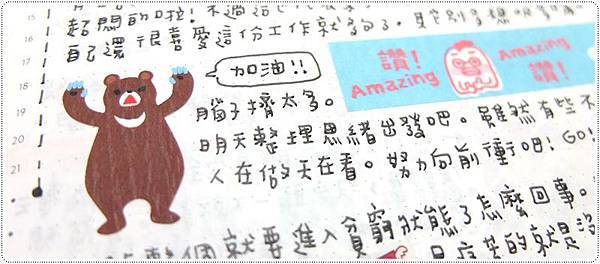 的啦!不過這
自己還很喜愛這份工作就夠了。其它別多想
加油!!
讚!
Amazing
Amazing
讚!
腦子擠太多。
明天整理思緒出發吧。雖然有些不
人在做天在看。努力向前衝吧!GO!
整個就要進入貧窮狀態了怎麼回事。
的就是沒
15
17
18
19
20
21